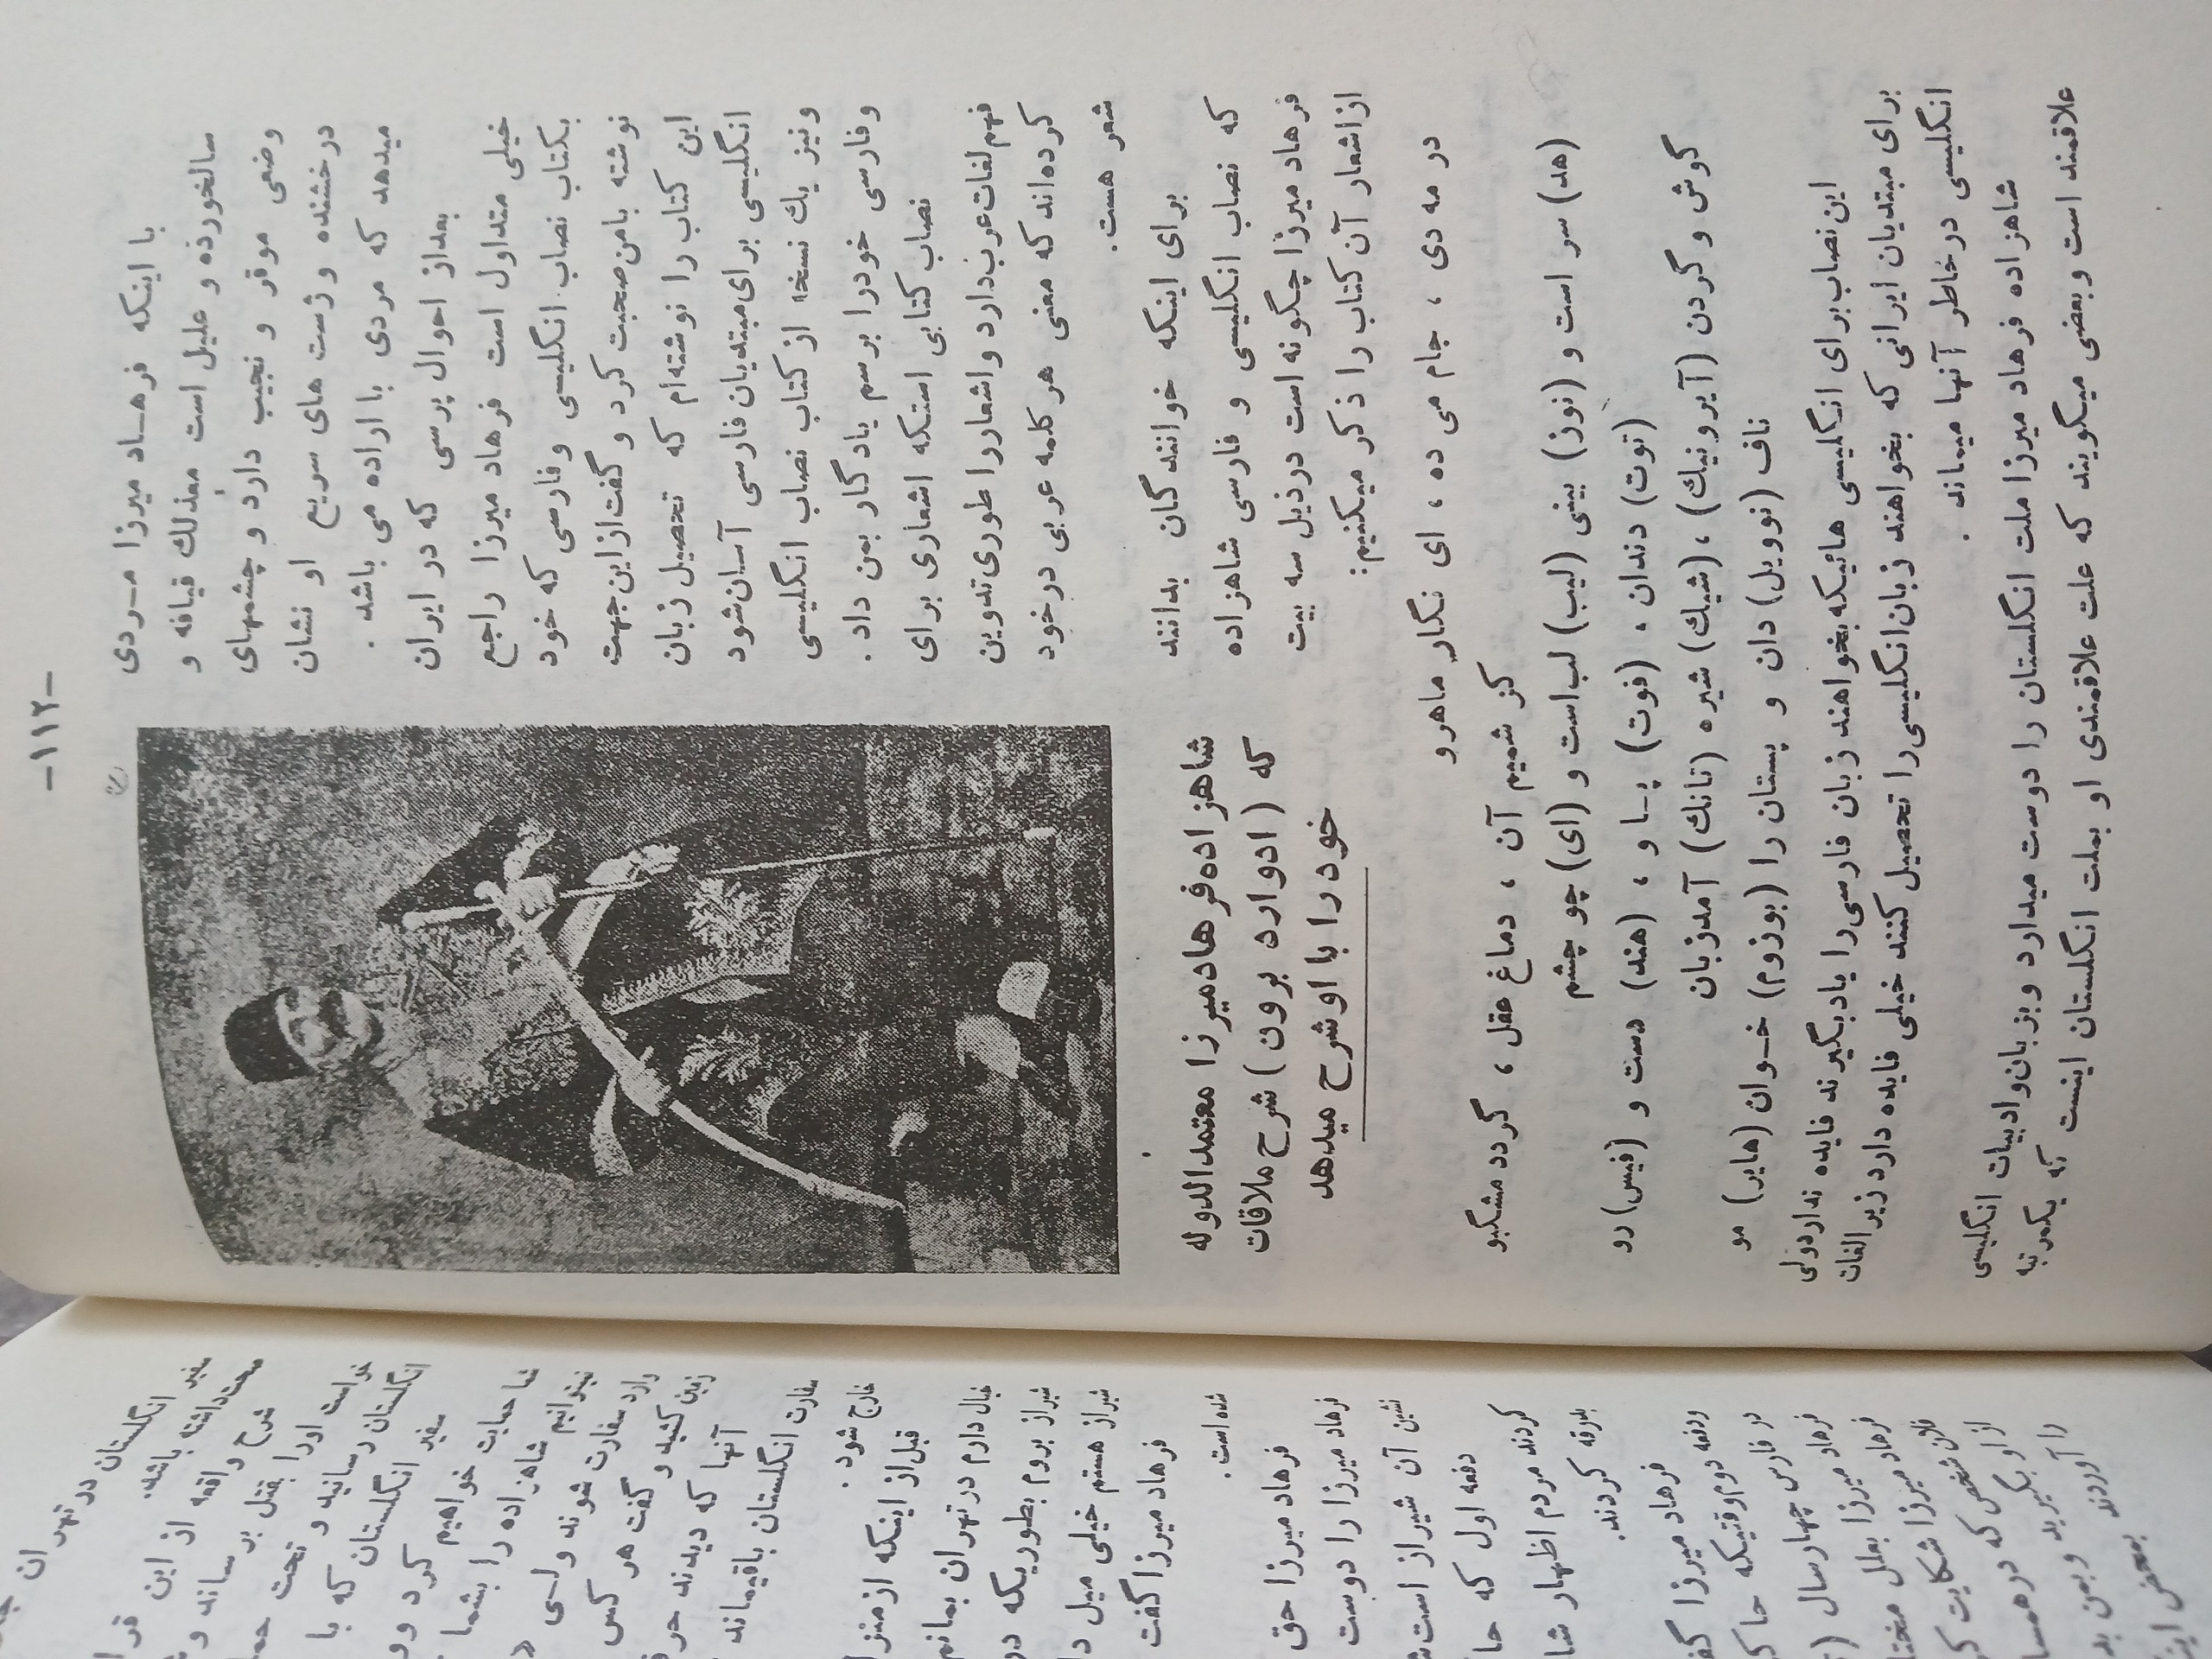 -۱۱۲-
با اینکه فرهاد میرزا مردی
سالخورده و علیل است معذلك قیافه و
وضعی موقر و نجیب دارد و چشمهای
درخشنده و ژست های سریع او نشان
میدهد که مردی با اراده می باشد .
بعداز احوال پرسی که در ایران
خیلی متداول است فرهاد میرزا راجع
بکتاب نصاب انگلیسی وفارسی که خود
نوشته بامن صحبت کرد و گفت از این جهت
این کتاب را نوشته‌ام که تحصیل زبان
انگلیسی برای مبتدیان فارسی آسان شود
ونیز یك نسخه از کتاب نصاب انگلیسی
وفارسی خودرا برسم یادگار بمن داد .
نصاب کتابی استکه اشعاری برای
فهم لغات عرب دارد و اشعاررا طوری تدوین
کرده‌اند که معنی هر کلمه عربی درخود
شعر هست.
برای اینکه خوانندگان بدانند
که نصاب انگلیسی و فارسی شاهزاده
فرهاد میرزا چگونه است درذیل سه بیت
ازاشعار آن کتاب را ذکر میکنیم:
شاهزاده فرهاد میرزا معتمدالدوله
که (ادوارد برون) شرح ملاقات
خود را با او شرح میدهد
در مه دی ، جام می ده ، ای نگار ماهرو
کز شمیم آن ، دماغ عقل ، گردد مشگبو
(هد) سر است و (نوز) بینی (لیب) لب است و (ای) چو چشم
(توت) دندان ، (فوت) پا و ، (هند) دست و (فیس) رو
گوش و گردن (آیرو نیك) ، (شیك) شیره (تانك) آمد زبان
ناف (نوویل) دان و پستان را (بوزوم) خوان (هایر) مو
این نصاب برای انگلیسی هائیکه بخواهند زبان فارسی را یاد بگیرند فایده ندارد ولی
برای مبتدیان ایرانی که بخواهند زبان انگلیسی را تحصیل کنند خیلی فایده دارد زیرا لغات
انگلیسی در خاطر آنها میماند .
شاهزاده فرهاد میرزا ملت انگلستان را دوست میدارد و بزبان و ادبیات انگلیسی
علاقمند است و بعضی میگویند که علت علاقمندی او بملت انگلستان اینست که یکمرتبه
سفیر انگلستان در تهران
صحت داشته باشد.
شرح واقعه از این قرا
خواست اورا بقتل برساند و
انگلستان رسانید و تحت حم
سفیر انگلستان که با
شما حمایت خواهیم کرد وو
نمیتوانیم شاهزاده را بشما
وارد سفارت شوند ولی
زمین کشید و گفت هر کس
آنها که دیدند حر
سفارت انگلستان باقیماند
خارج شود.
قبل از اینکه از منزل
خیال دارم در تهران بمانم
شیراز بروم بطوریکه در
شیراز هستم خیلی میل دا
فرهاد میرزا گفت
شده است.
فرهاد میرزا حق
فرهاد میرزا را دوست
نشین آن شیراز است
دفعه اول که حا
کردند مردم اظهار شا
بدرقه کردند.
فرهاد میرزا گف
ودفعه دوم وقتیکه حاک
در فارس چهار سال (
فرهاد میرزا بعلل مختل
فرهاد میرزا شکایت ک
فلان شخص که در همسا
از او بگیرید و بمن بد
را آوردند بمحض این